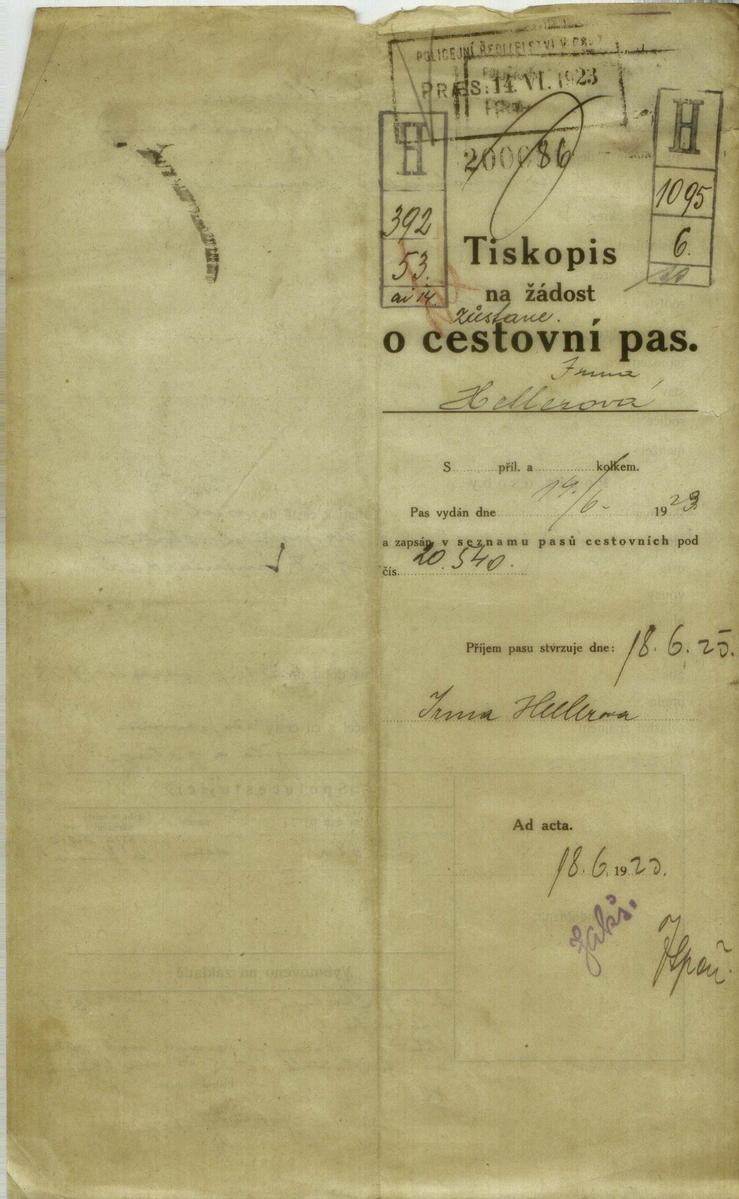 POLICEJNÍ ŘEDITELSTVÍ V PRAZE
PRAES: 14. VI. 1923
200086
H
392
53.
ai 14
H
1095
6.
Tiskopis
na žádost
zůstane.
o cestovní pas.
Irma
Hellerová
S příl. a kolkem.
Pas vydán dne 14./6. 1923
a zapsán v seznamu pasů cestovních pod
čís. 20.540.
Příjem pasu stvrzuje dne: 18.6.23.
Irma Hellerova
Ad acta.
18.6.1923.
Spolucestující
Vyhotoveno na základě